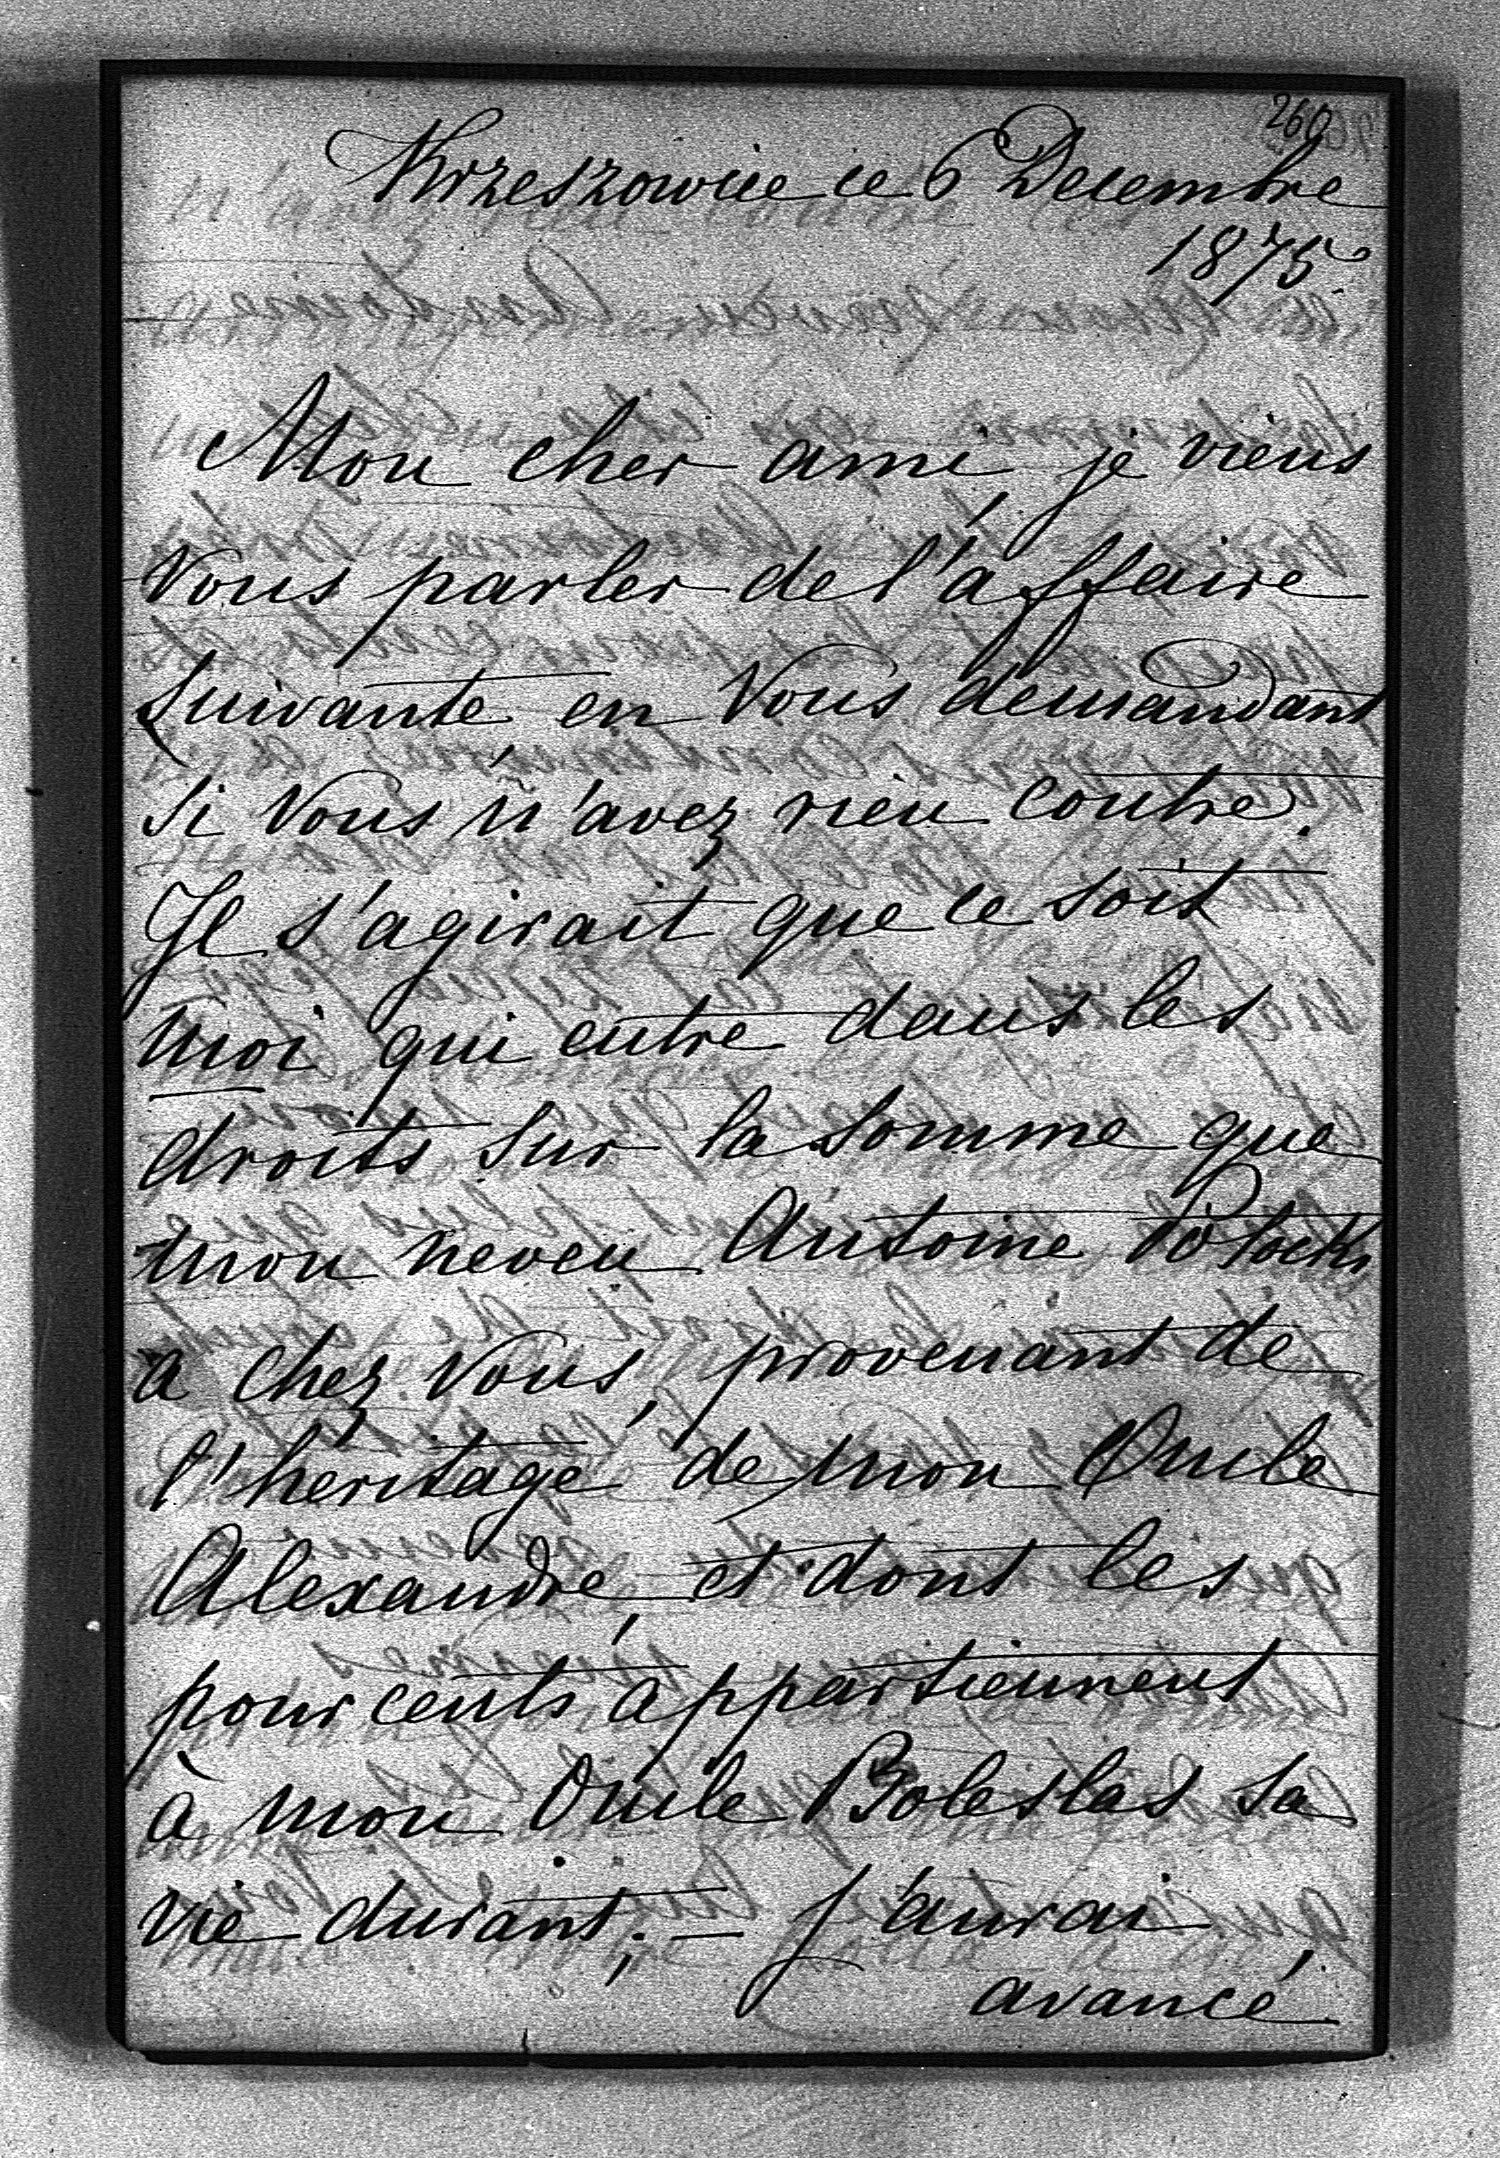 260
Krzeszowice ce 6 Decembre
1875.
Mon cher ami, je viens
Vous parler de l'affaire
suivante en Vous demandant
si Vous n'avez rien contre.
Il s'agirait que ce soit
moi qui entre dans les
droits sur la somme que
mon neveu Antoine Potocki
a chez Vous, provenant de
l'heritage de mon Oncle
Alexandre, et dont les
pour cents appartiennent
à mon Oncle Boleslas sa
vie durant; — J'aurai
avancé